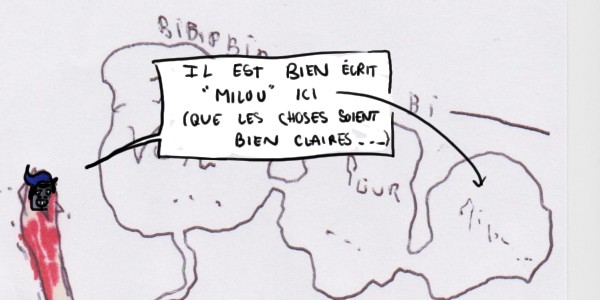 BIBIPBIP
IL EST BIEN ÉCRIT
"MILOU" ICI
(QUE LES CHOSES SOIENT
BIEN CLAIRES...)
BI
POUR
...
...